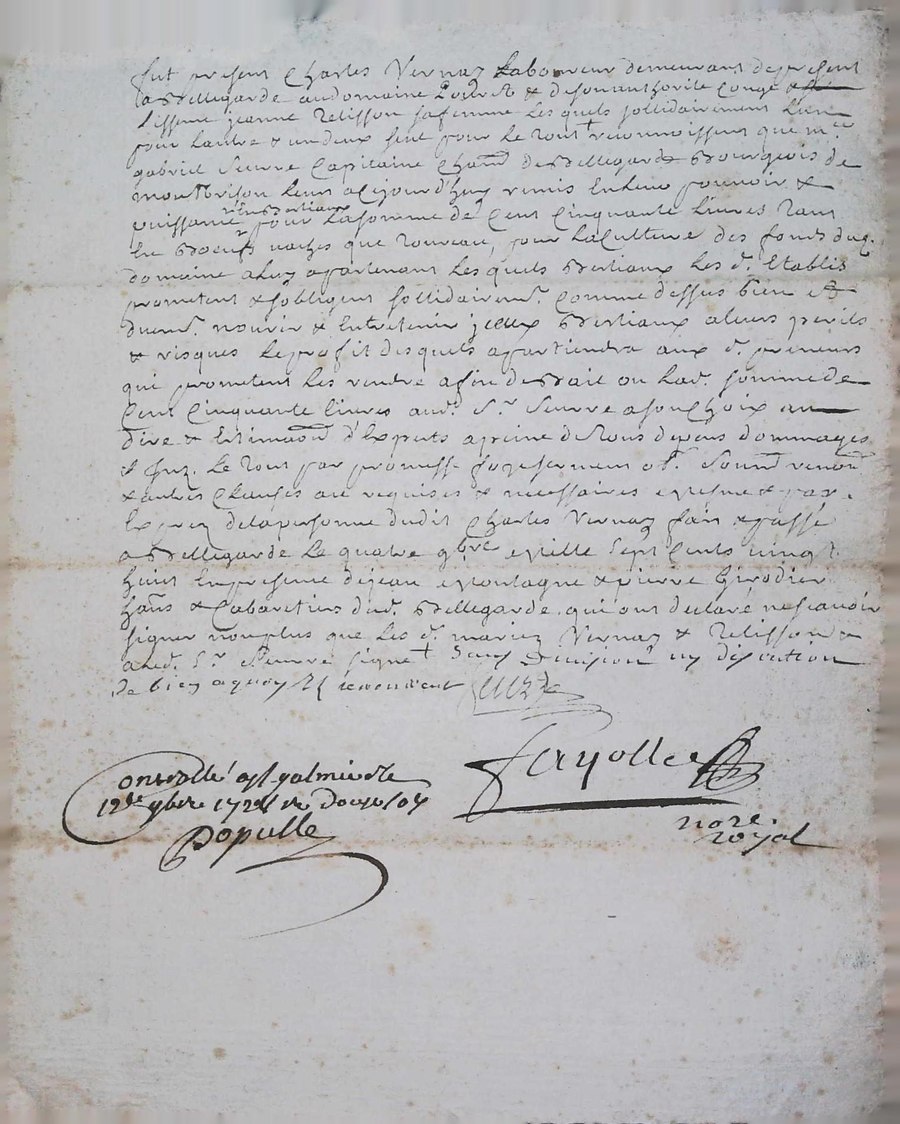 fut present Charles Vernay Laboureur demeurant depresent
a Bellegarde audomaine & desonauthorité Conge &
Licence jeanne Relisson safemme Lesquels sollidairement L'un
pour Lautre & undeux seul pour Le tout reconnoissent que m.re
gabriel Seurre Capitaine Cha.n de Bellegarde Bourgeois de
montbrison Leur acejourd'huy remis Enleur pouvoir &
puissance en Bestiaux pour Lasomme de Cent Cinquante Livres tant
En Boeufs vaches que toureau, pour LaCulture des fonds dud.
domaine aluy apartenant Lesquels Bestiaux Les d. Etablis
prometent & sobligent sollidairem.t Comme dessus bien &
duem.t nourir & Entretenir jceux Bestiaux aleurs perils
& risques Leprofit desquels apartiendra aux d. preneurs
qui prometent Les rendre afin de Bail ou Lad. somme de
Cent Cinquante livres aud. S.r Seurre asonChoix au
dire & Estimaon d'Experts apeine deTous depens dommages
& Jnz. Le tout par promesse obl. renon
& autres Clauses au requises & necessaires
delapersonne dudit Charles Vernay fait & passé
a Bellegarde Le quatre 9bre Mille Sept Cents vingt
huit Enpresence dejean Montagne & pierre Girodier
ha.ns & Cabaretiers dud. Bellegarde qui ont declaré nescavoir
signer nonplus que Les d. mariez Vernay & Relisson &
aled. S.r Seurre signé + Sans Division ny discution
de bien aquoy Ils renoncent
Fayolle
Controllé a St galmier le
12e 9bre 1728 re Douze sols
Populle
no.re
royal